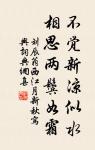 不觉新凉似水
相思两鬓如霜
刘辰翁西江月新秋写
兴词典网集